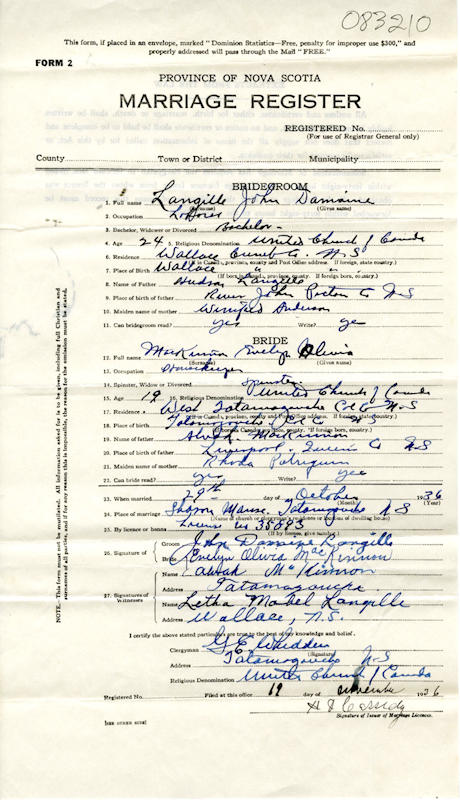 083210
This form, if placed in an envelope, marked "Dominion Statistics—Free, penalty for improper use $300," and
properly addressed will pass through the Mail "FREE."
FORM 2
PROVINCE OF NOVA SCOTIA
MARRIAGE REGISTER
REGISTERED No.
(For use of Registrar General only)
County Town or District Municipality
BRIDEGROOM
1. Full name Langille John Damaine
(Surname) (Given name)
2. Occupation Laborer
3. Bachelor, Widower or Divorced Bachelor
4. Age 24 5. Religious Denomination United Church / Canada
6. Residence Wallace Cumb Co. N.S.
7. Place of Birth Wallace " "
8. Name of Father Hudson Langille
9. Place of birth of father River John Pictou Co N.S
10. Maiden name of mother Winnifred
11. Can bridegroom read? yes Write? ye
BRIDE
12. Full name MacKinnon Evelyn Olivia
(Surname) (Given name)
13. Occupation Housekeeper
14. Spinster, Widow or Divorced Spinster
15. Age 19 16. Religious Denomination United Church / Canada
17. Residence West Tatamagouche Col Co N.S
18. Place of birth Tatamagouche Col Co N.S
19. Name of father MacKinnon
20. Place of birth of father Liverpool Queens Co N.S
21. Maiden name of mother Rhoda
22. Can bride read? yes Write? yes
23. When married 29th day of October 1936
(Month) (Year)
24. Place of marriage Sharon Manse, Tatamagouche N.S
(Name of church or dwelling house)
25. By licence or banns License No 35593
(If by license, give number)
26. Signature of Groom John Damaine Langille
Bride Evelyn Olivia MacKinnon
27. Signatures of Witnesses
Name McKinnon
Address Tatamagouche
Name Letha Mabel Langille
Address Wallace, N.S.
I certify the above stated particulars are true to the best of my knowledge and belief.
Clergyman G E Whidden
(Signature)
Address Tatamagouche N.S
Religious Denomination United Church / Canada
Registered No. Filed at this office 19 day of November 1936
Cassidy
Signature of Issuer of Marriage Licences.
[SEE OTHER SIDE]
NOTE. This form must not be mutilated. All information asked for is to be given, including full Christian and
surnames of all parties, and if for any reason this is impossible, the reason for the omission must be stated.